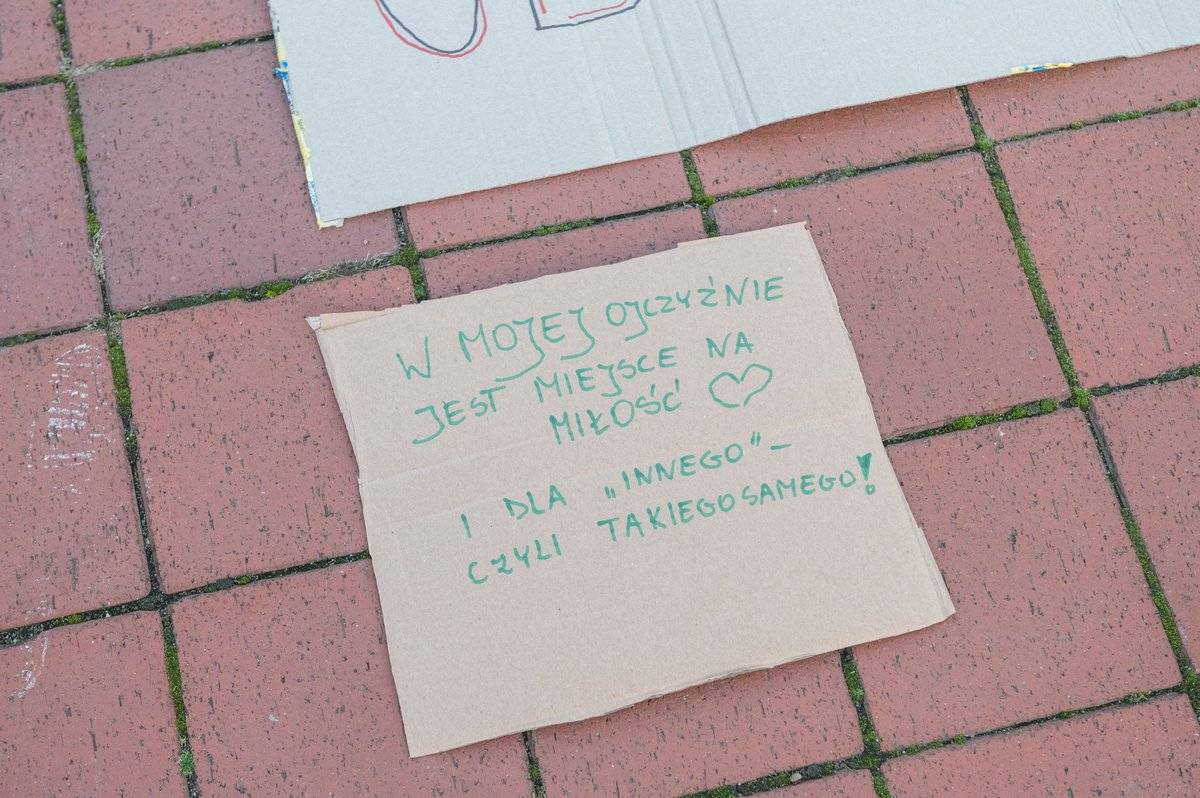 W MOJEJ OJCZYŹNIE
JEST MIEJSCE NA
MIŁOŚĆ ♡
I DLA „INNEGO" –
CZYLI TAKIEGOSAMEGO!